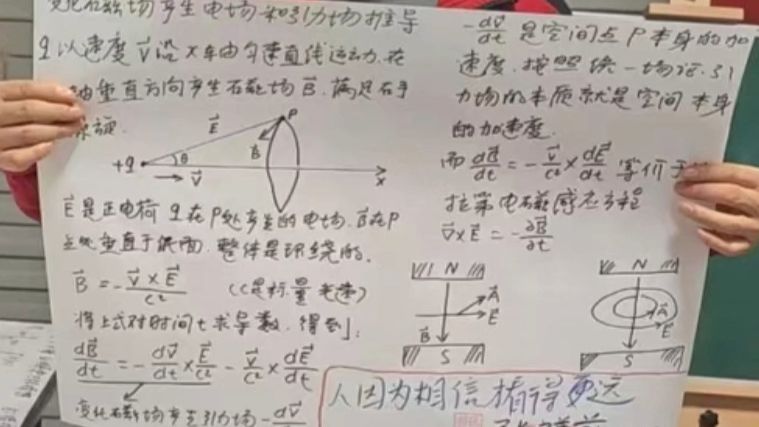 变化磁场产生电场和引力场推导
q以速度 V⃗ 沿 x 轴匀速直线运动,在
垂直方向产生磁场 B⃗. 满足右手
E⃗
P
B⃗
+q
θ
V⃗
x
E⃗ 是正电荷 q 在 P 处产生的电场. B⃗ 在 P
点处垂直于纸面. 整体是环绕的.
B⃗ = - V⃗ × E⃗ / c² (C是标量光速)
将上式对时间 t 求导数, 得到:
dB⃗/dt = - dV⃗/dt × E⃗/c² - V⃗/c² × dE⃗/dt
变化磁场产生引力场 - dV⃗
- dV⃗/dt 是空间点 P 本身的加
速度. 按照统一场论. 引
力场的本质就是空间本身
的加速度.
而 dB⃗/dt = - V⃗/c² × dE⃗/dt 等价于
拉第电磁感应方程
∇⃗×E⃗ = - ∂B⃗/∂t
N
A⃗
E⃗
B⃗
S
N
A⃗
E⃗
S
人因为相信